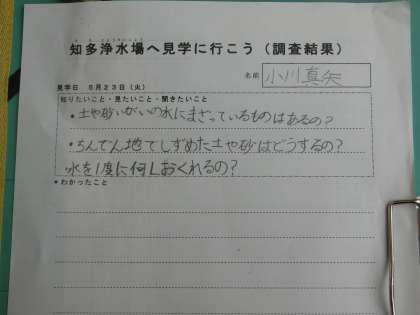 知多浄水場へ見学に行こう（調査結果）
名前 小川真矢
見学日 5月23日（火）
知りたいこと・見たいこと・聞きたいこと
・土や砂いがいの水にまざっているものはあるの？
・ちんでん地でしずめた土や砂はどうするの？
水を1度に何Lおくれるの？
・わかったこと